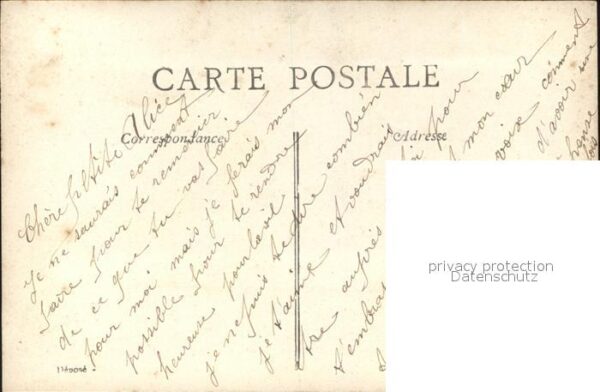 CARTE POSTALE
Correspondance
Adresse
Chère petite Alice
Je ne saurais comment
faire pour te remercier
de ce que tu vas faire
pour moi mais je ferais mon
possible pour te rendre
heureuse pour le
je ne puis te dire combien
je t'aime et voudrais
être auprès pour
t'embras mon cœur
voix comment
d'avoir une
Déposé
privacy protection
Datenschutz